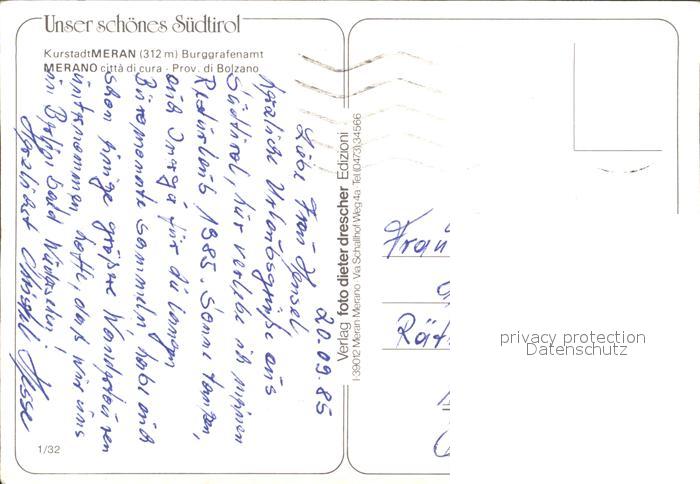 Unser schönes Südtirol
Kurstadt MERAN (312 m) Burggrafenamt
MERANO città di cura - Prov. di Bolzano
20.09.85
Liebe Frau Hensel
herzliche Urlaubsgrüße aus
Südtirol, hier verlebe ich meinen
Resturlaub 1985. Sonne tanken,
und Energie für die langen
Büromonate sammeln, habe auch
schon einige größere Wandertouren
unternommen, hoffe, daß wir uns
in Berlin bald wiedersehen!
Herzlichst Christel Hesse
Verlag foto dieter drescher Edizioni
I-39012 Meran-Merano · Via Schallhof-Weg 4a · Tel (0473) 34566
Frau
Rät
privacy protection
Datenschutz
1/32